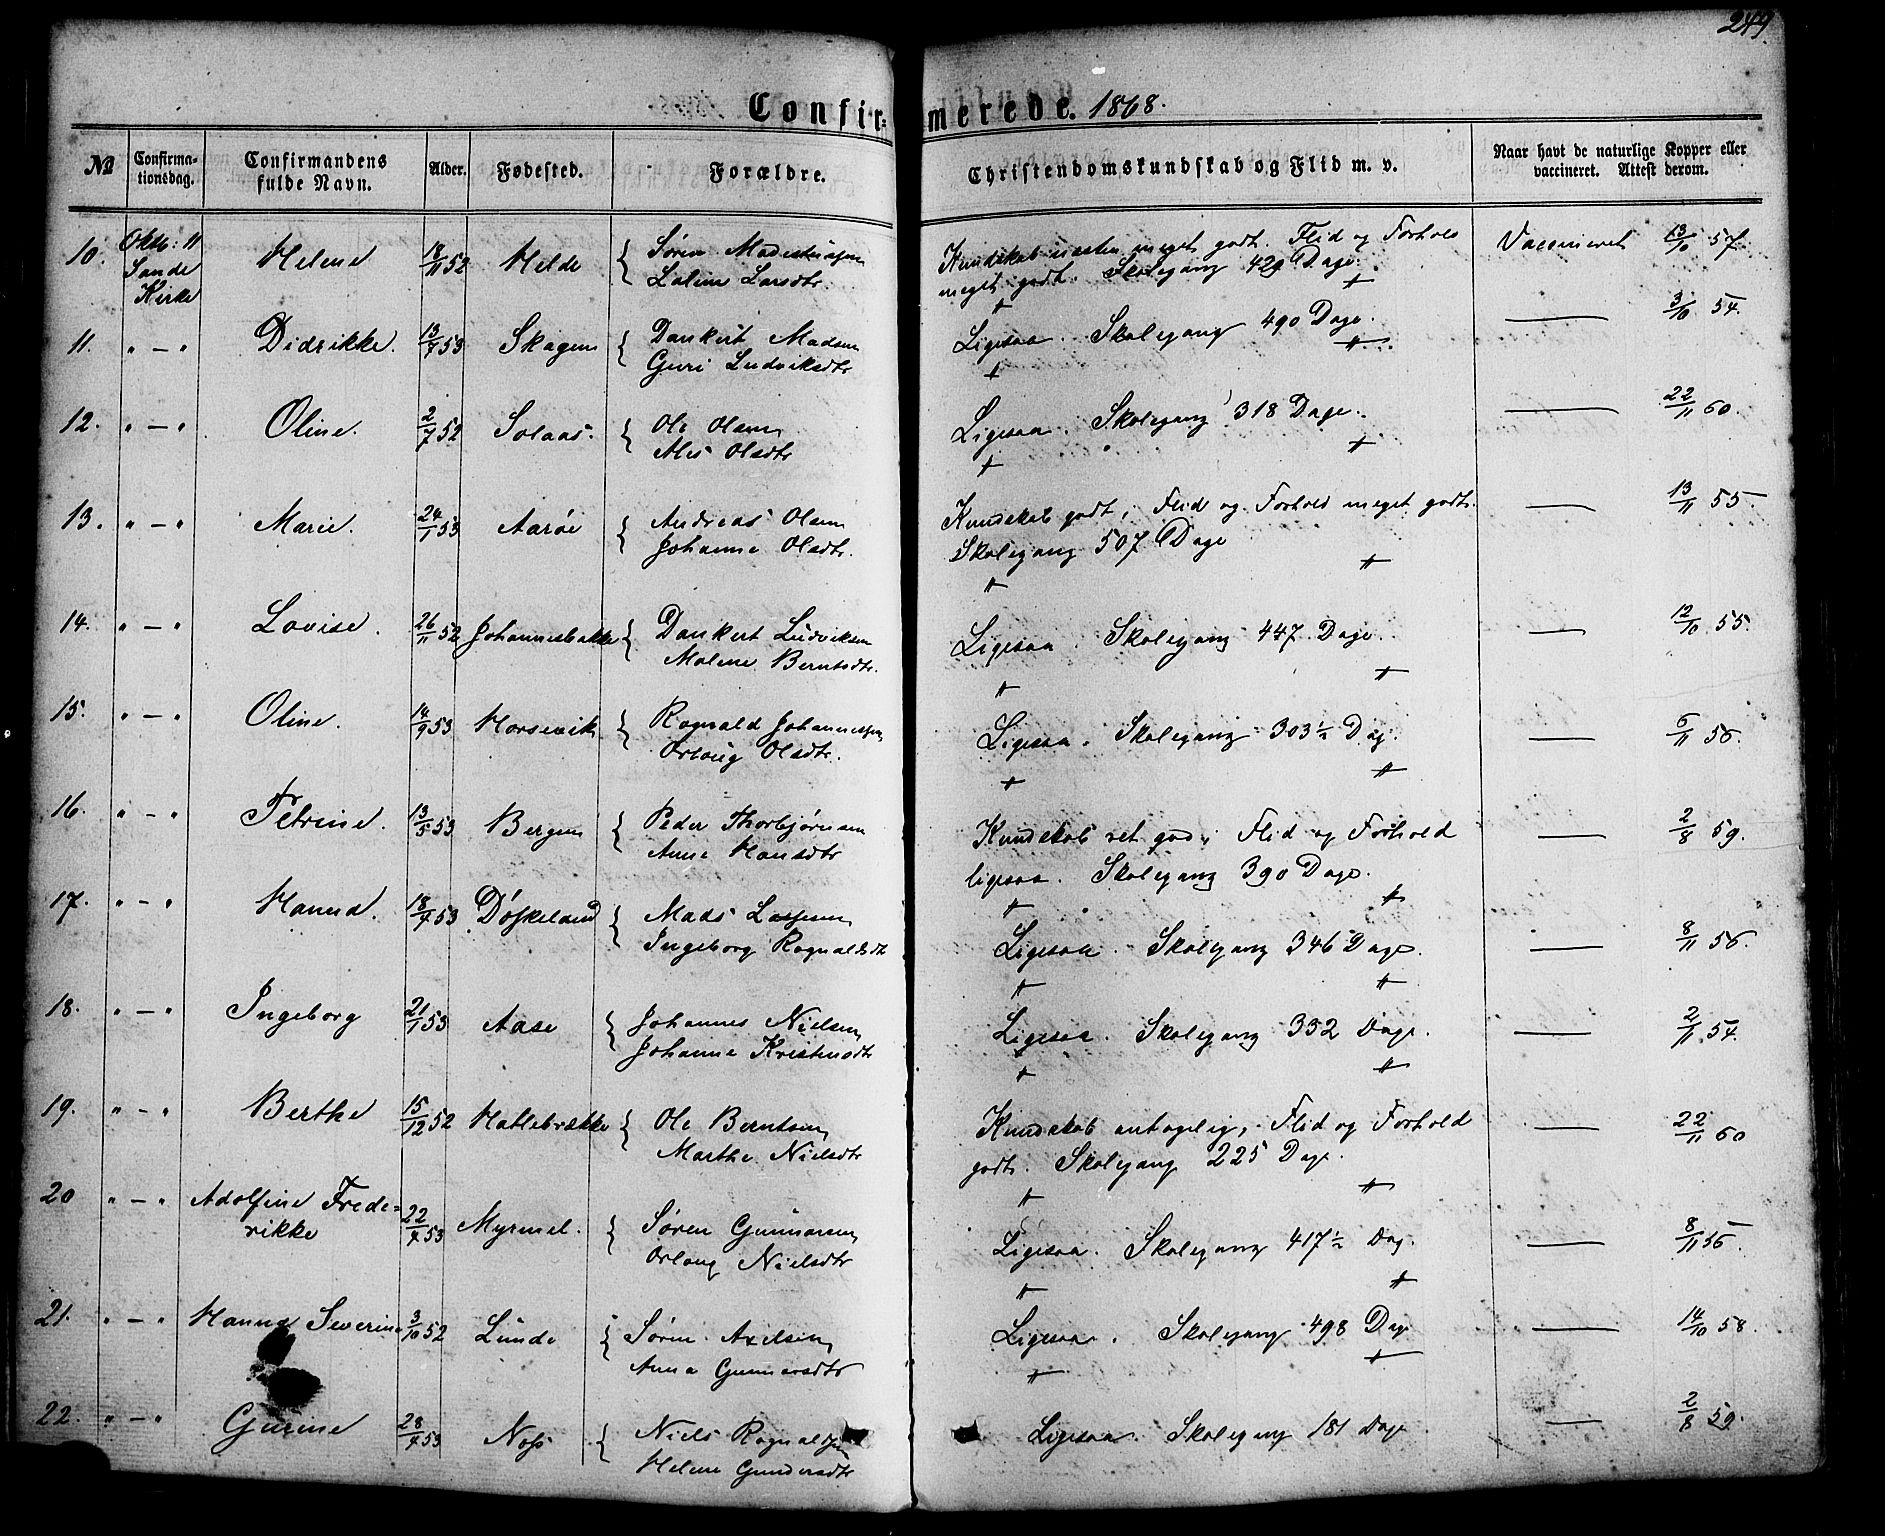 249.
Confirmerede. 1868.
No Confirmationsdag. Confirmandens fulde Navn. Alder. Fødested. Forældre. Christendomskundskab og Flid m. v. Naar havt de naturlige Kopper eller vaccineret. Attest derom.
10. Oktb: 11 Helene 18/11 52 Helde { Søren
Sande Kirke Lovine Larsdtr.
Kundskab næsten meget godt. Flid og Forhold Vaccineret 13/10 57.
meget godt. Skolegang 429 Dage.
11. " — " Didrikke. 13/7 53 Skagen { Dankert Madsen
Guri Ludviksdtr
Ligesaa. Skolegang 490 Dage. — 3/10 54.
12. " — " Oline. 2/7 52 Solaas. { Ole Olsen
Ales Olsdtr
Ligesaa. Skolegang 318 Dage. — 22/11 60.
13. " — " Marie. 24/1 53 Aarøe { Andreas Olsen
Johanne Olsdtr.
Kundskab godt, Flid og Forhold meget godt. — 13/11 55
Skolegang 507 Dage
14. " — " Lovise. 26/11 52 Johannesbakke { Dankert Ludviksen
Malene Berntsdtr.
Ligesaa. Skolegang 447 Dage. — 12/10 55.
15. " — " Oline. 14/9 53 Horsevik { Rognald Johannessen
Orloug Olsdtr.
Ligesaa. Skolegang 303 1/2 Dag. — 6/11 56.
16. " — " Petrine. 13/5 53 Bergen { Peder Thorbjørnsen
Anne Hansdtr
Kundskab ret god, Flid og Forhold — 2/8 59.
ligesaa. Skolegang 390 Dage.
17. " — " Hanna. 18/4 53 Døskeland { Mads Lassesen
Ingeborg Rognaldsdtr
Ligesaa. Skolegang 346 Dage. — 8/11 56.
18. " — " Ingeborg 21/1 53 Aase { Johannes Nielsen
Johanne Kristensdtr
Ligesaa. Skolegang 352 Dage. — 2/11 54.
19. " — " Berthe 15/12 52 Hatlebrække { Ole Berntsen
Marthe Nielsdtr
Kundskab antagelig, Flid og Forhold — 22/11 60
godt. Skolegang 225 Dage.
20 " — " Adolfine Frede=
rikke 22/4 53 Myrmel. { Søren Gunnarsen
Orloug Nielsdtr
Ligesaa. Skolegang 417 1/2 Dag. — 8/11 55.
21. " — " Hanna Severine 3/10 52 Lunde { Søren Axelsen
Anna Gunnarsdtr
Ligesaa. Skolegang 498 Dag — 14/10 58.
22. " — " Gurine 28/4 53 Noss { Niels Rognaldsen
Helene Gundersdtr
Ligesaa. Skolegang 181 Dage — 2/8 59.